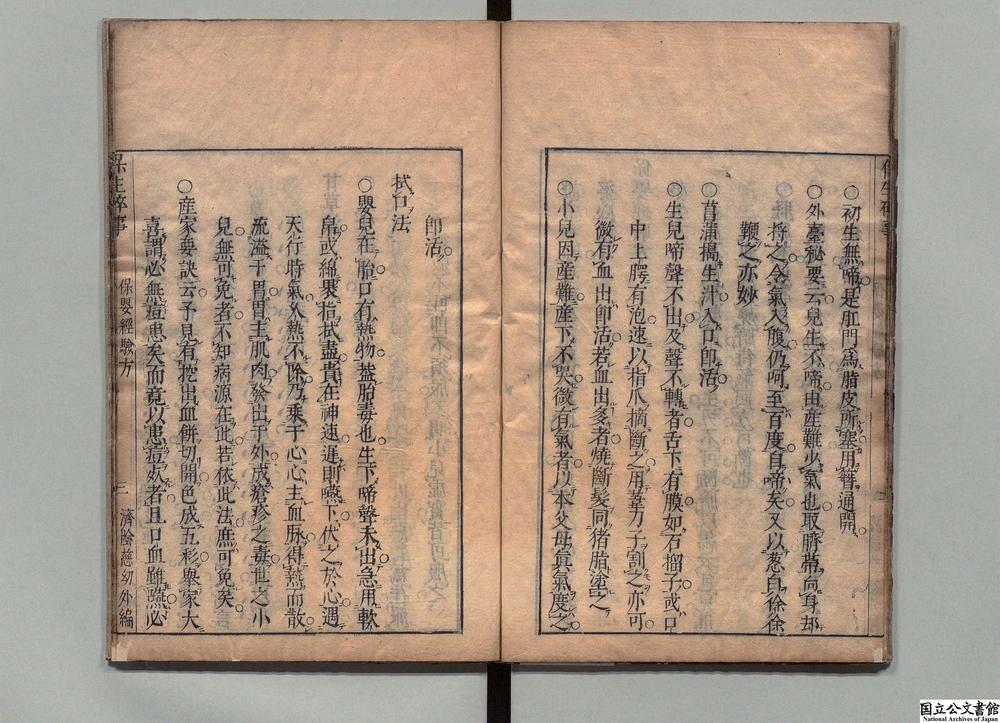 ○初生無啼是肛門爲脂皮所塞用簪通開
○外臺秘要云兒生不啼由産難少氣也取臍帶向身却
捋之令氣入腹仍呵至百度自啼矣又以葱白徐徐
鞭之亦妙
○菖蒲搗生汁入口即活
○生兒啼聲不出及聲不轉者舌下有膜如石榴子或口
中上腭有泡速以指爪摘斷之用葦刀子割之亦可
微有血出即活若血出多者燒斷髮同猪脂塗之
○小兒因産難産下不哭微有氣者以本父母眞氣度之
即活
拭口法
○嬰兒在胎口有熱物蓋胎毒也生下啼聲未出急用軟
帛或綿裹指拭盡貴在神速遲則嚥下伏之於心遇
天行時氣久熱不除乃乘于心心主血脉得熱而散
流溢于胃胃主肌肉發出于外成瘡疹之毒世之小
兒無可免者不知病源在此若依此法庶可免矣
○産家要訣云予見有挖出血餅切開色成五彩舉家大
喜謂必無痘患矣而竟以患痘殀者且口血雖嚥必
保生碎事
保嬰經驗方
三
濟陰慈幼外編
国立公文書館
National Archives of Japan